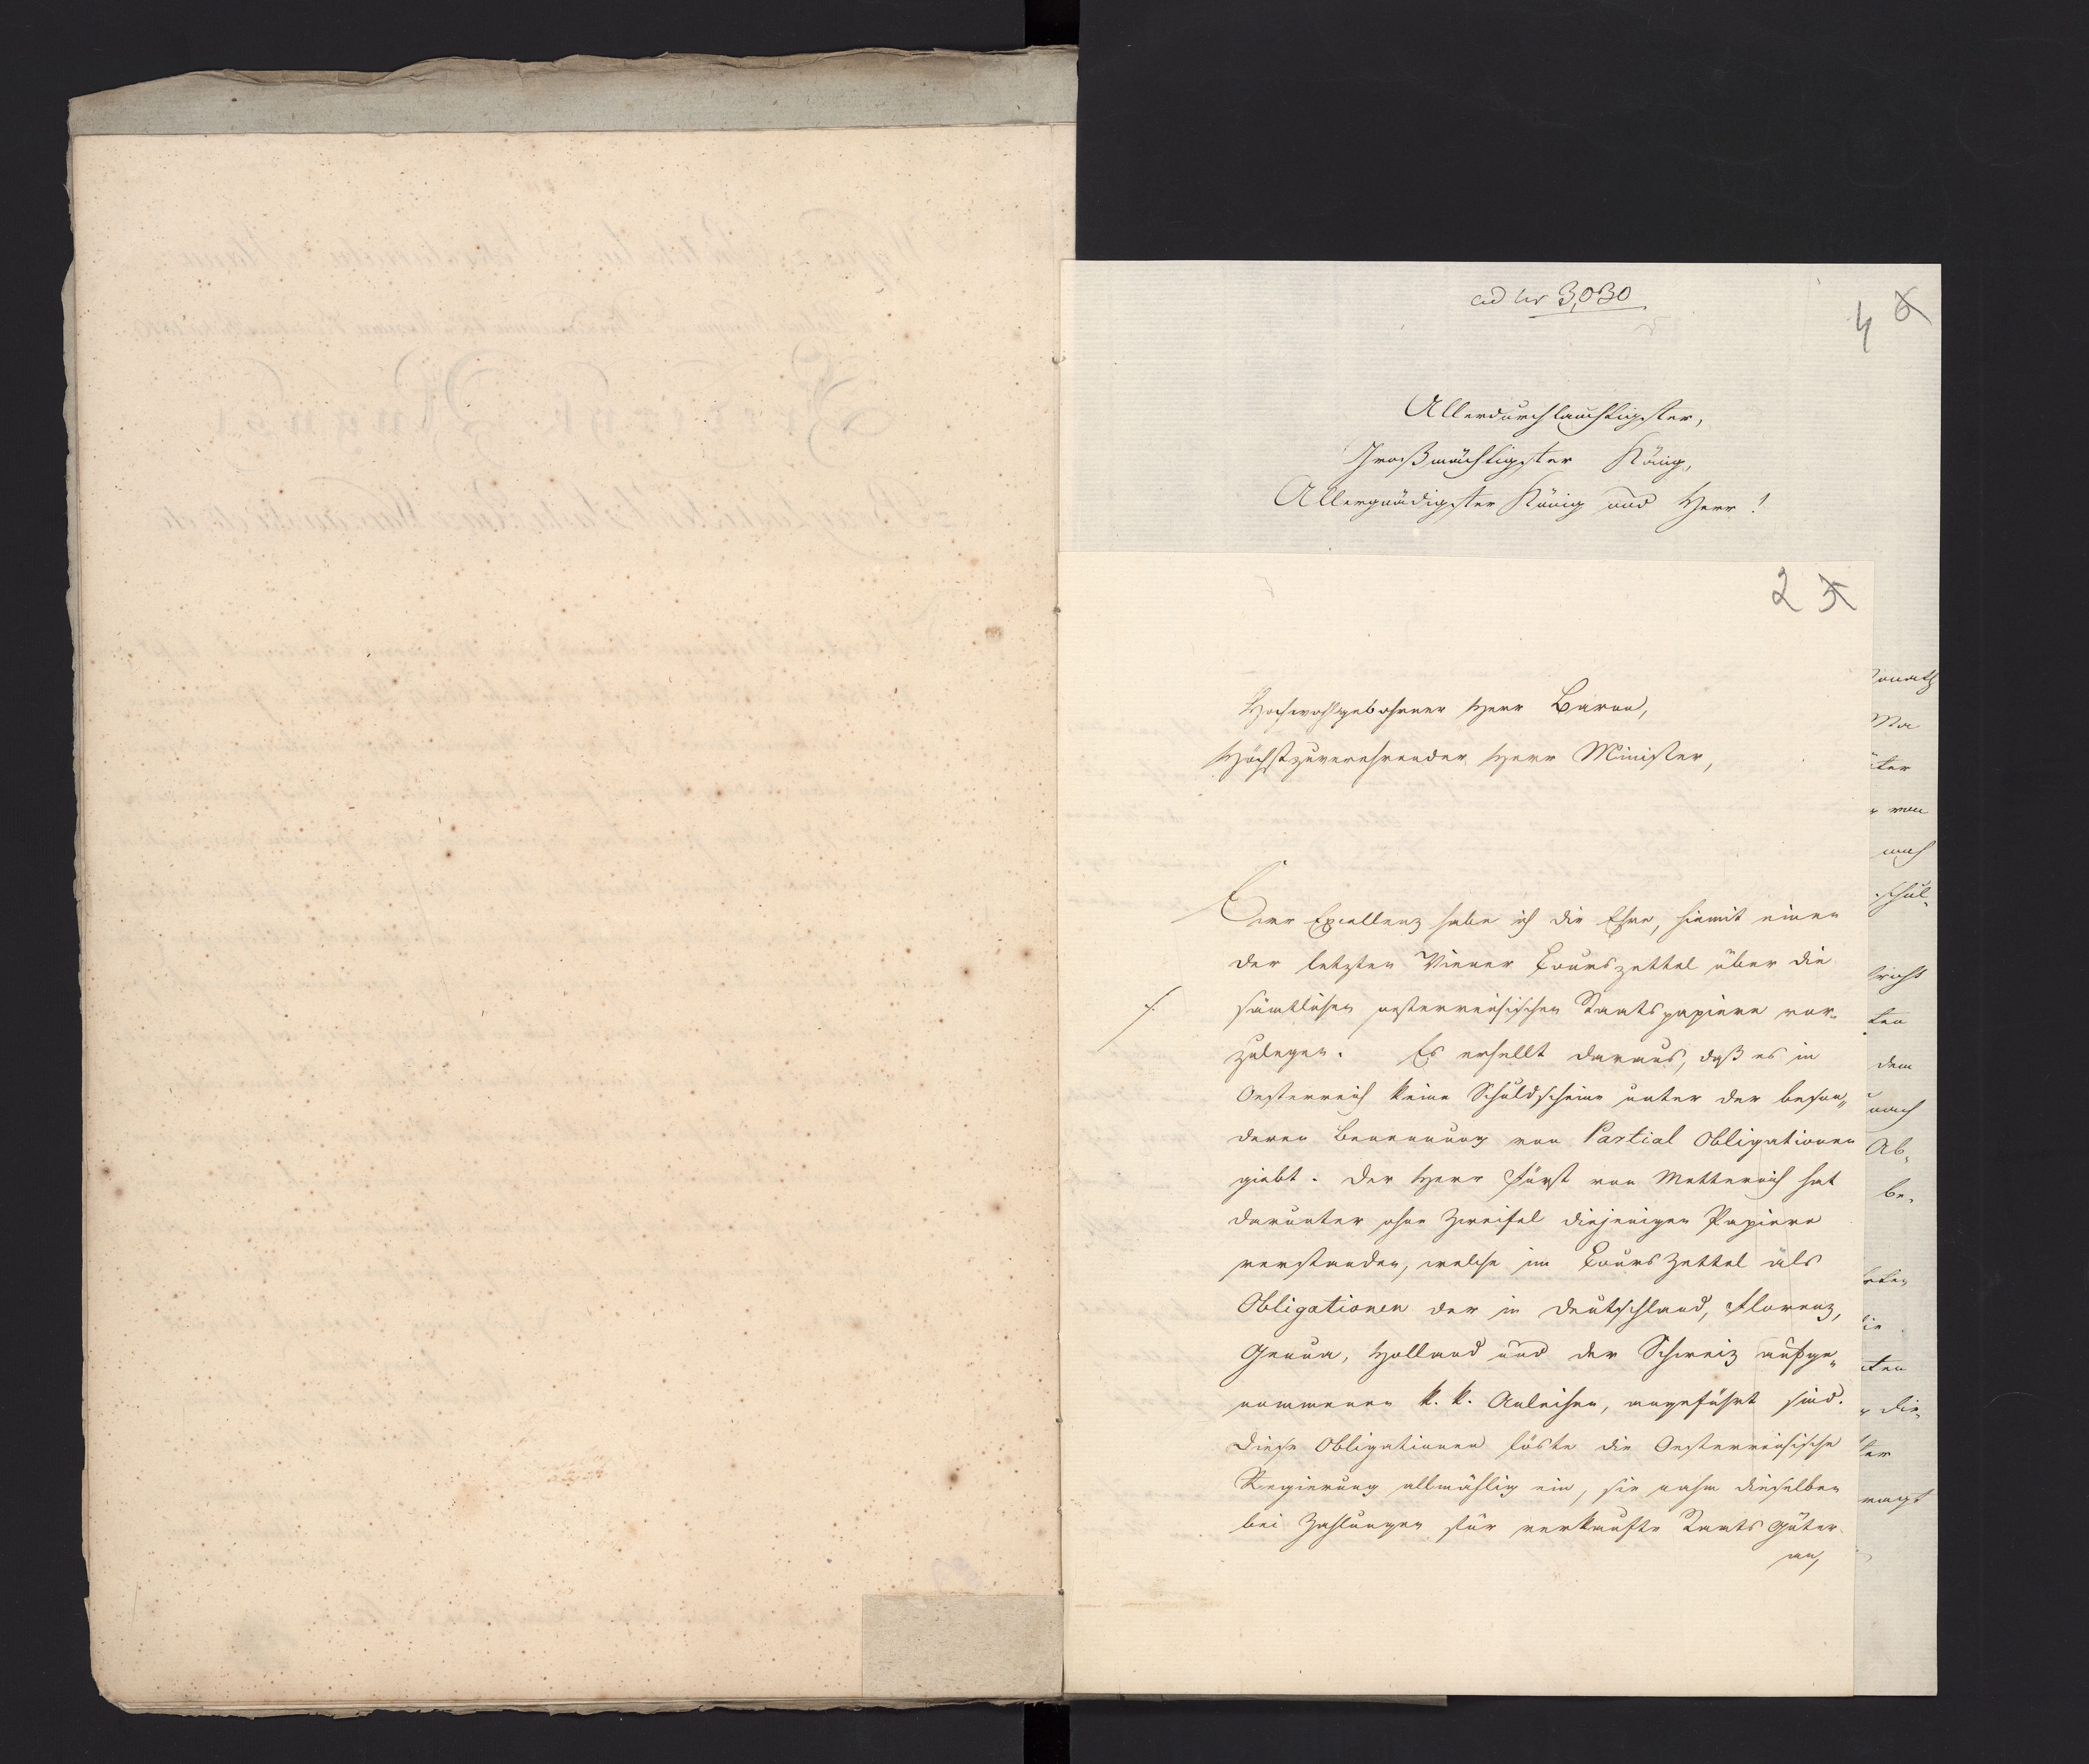 ad Nr 3,030
4
Allerdurchlauchtigster,
Großmächtigster König,
Allergnädigster König und Herr!
2
Hochwohlgebohrner Herr Baron,
Höchstzuverehrender Herr Minister,
Euer Excellenz habe ich die Ehre, hiemit einen
der letzten Wiener Courszettel über die
sämtlichen oesterreichischen Staatspapiere vor-
zulegen. Es erhellt daraus, daß es in
Oesterreich keine Schuldscheine unter der beson„
deren Benennung von Partial Obligationen
giebt. Der Herr Fürst von Metternich hat
darunter ohne Zweifel diejenigen Papiere
verstanden, welche im Cours Zettel als
Obligationen der in Deutschland, Florenz,
Genua, Holland und der Schweiz aufge„
nommenen k. k. Anleihen, angeführt sind.
Diese Obligationen löste die Oesterreichische
Regierung allmählig ein, sie nahm dieselben
bei Zahlungen für verkaufte Staats Güter
an,
von
nach
schul-
ten
dem
nach
Ab-
be-
ten
die-